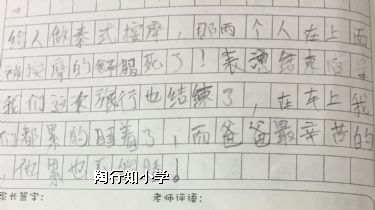 给人做泰式按摩，那两个人在上面
被按摩的舒服死了！表演结束
我们这次旅行也结练了，在车上我
们都累的睡着了，而爸爸最辛苦的
他累也不能睡。
陶行知小学
家长签字： 老师评语：